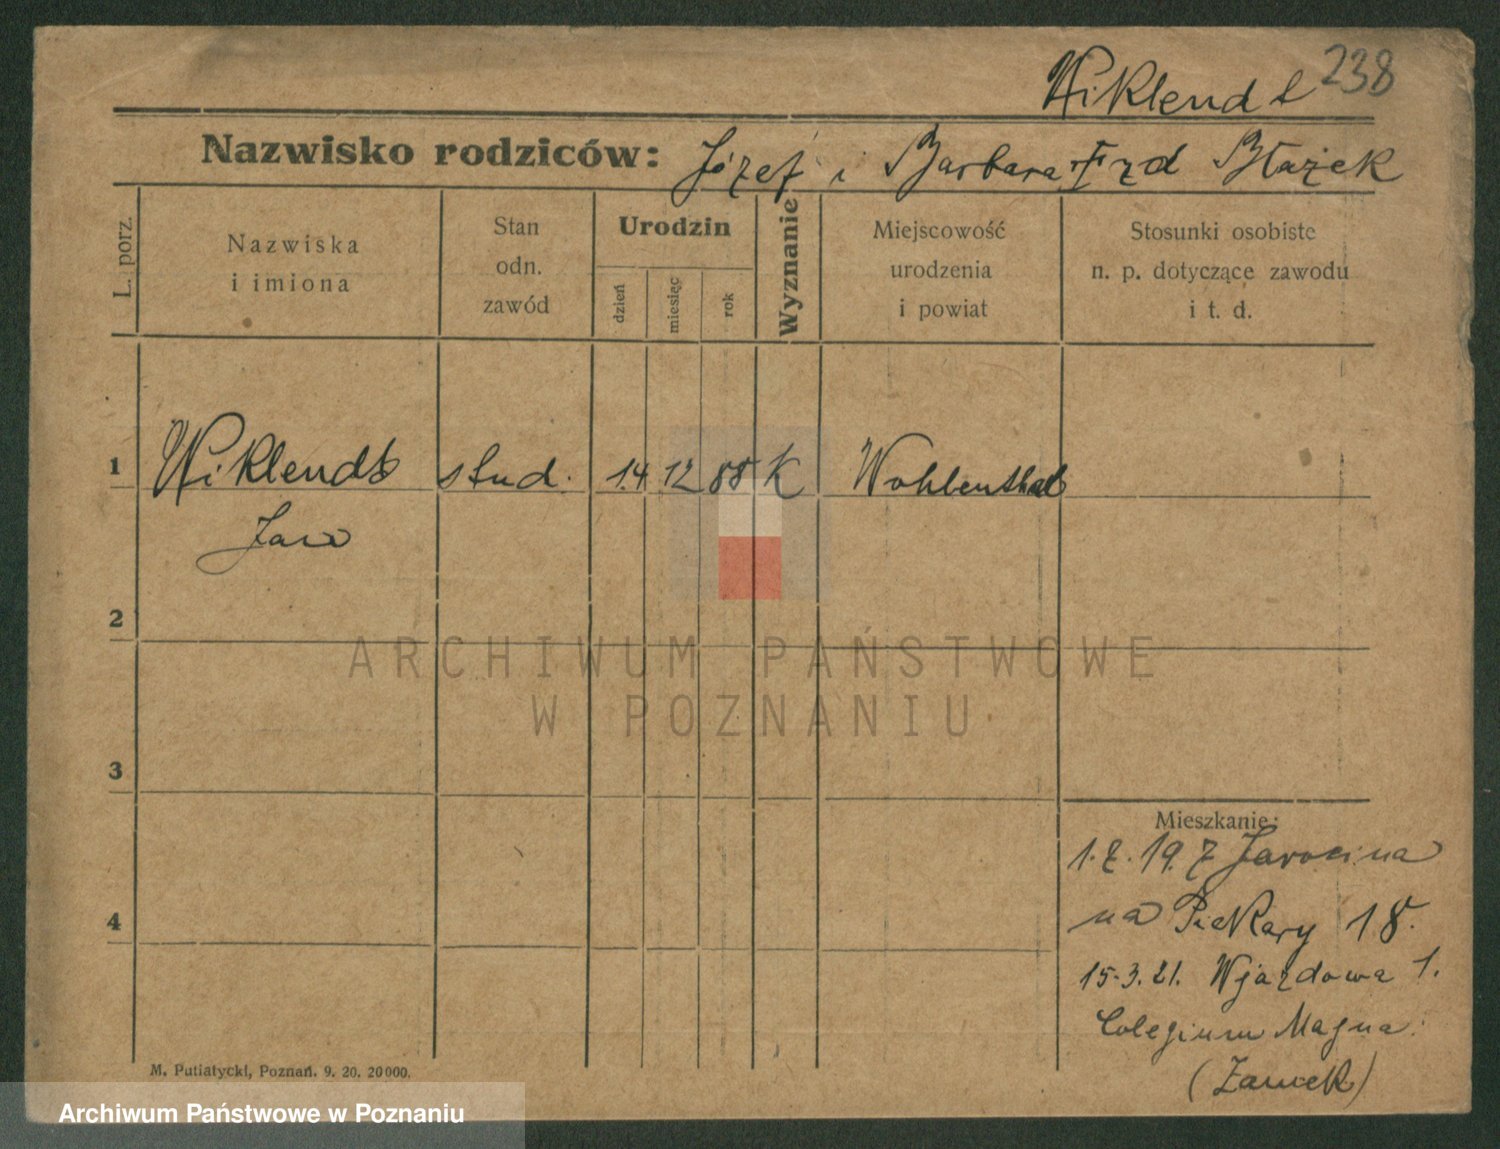 238
Wiklendt
Nazwisko rodziców: Józef i Barbara Błażek
L. porz.
Nazwiska
i imiona
Stan
odn.
zawód
Urodzin
dzień
miesięc
rok
Wyznanie
Miejscowość
urodzenia
i powiat
Stosunki osobiste
n. p. dotyczące zawodu
i t. d.
1 Wiklendt stud. 14 12 88 K Wohlenthal
Jan
2
3
4
Mieszkanie:
Jarocina
na Piekary 18.
15.3.21. Wjazdowa 1.
Colegium Magna.
(Zamek)
M. Putiatycki, Poznań. 9. 20. 20000.
ARCHIWUM PAŃSTWOWE
W POZNANIU
Archiwum Państwowe w Poznaniu